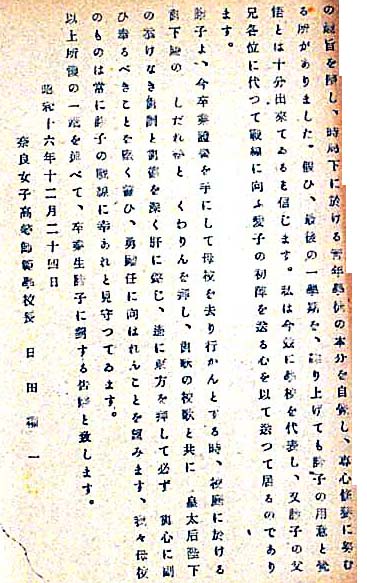 の趣旨を體し、時局下に於ける青年學徒の本分を自覺し、專心修養に努む
る所がありました。假ひ、最後の一學期を、繰り上げても諸子の用意と覺
悟とは十分出來てゐると信じます。私は今茲に學校を代表し、又諸子の父
兄各位に代つて戰線に向ふ愛子の初陣を送る心を以て送つて居るのであり
ます。
諸子よ、今卒業證書を手にして母校を去り行かんとする時、校庭に於ける
御下賜の しだれ くわりんを拜し、御歌の校歌と共に 皇太后陛下
の忝けなき御訓と御德を深く肝に銘じ、遙に東方を拜して必ず 御心に副
ひ奉るべきことを堅く誓ひ、勇躍任に向はれんことを望みます、我々母校
のものは常に諸子の戰線に幸あれと見守つてゐます。
以上所懷の一端を延べて、卒業生諸子に對する告辭と致します。
昭和十六年十二月二十四日
奈良女子高等師範學校長 日田 一